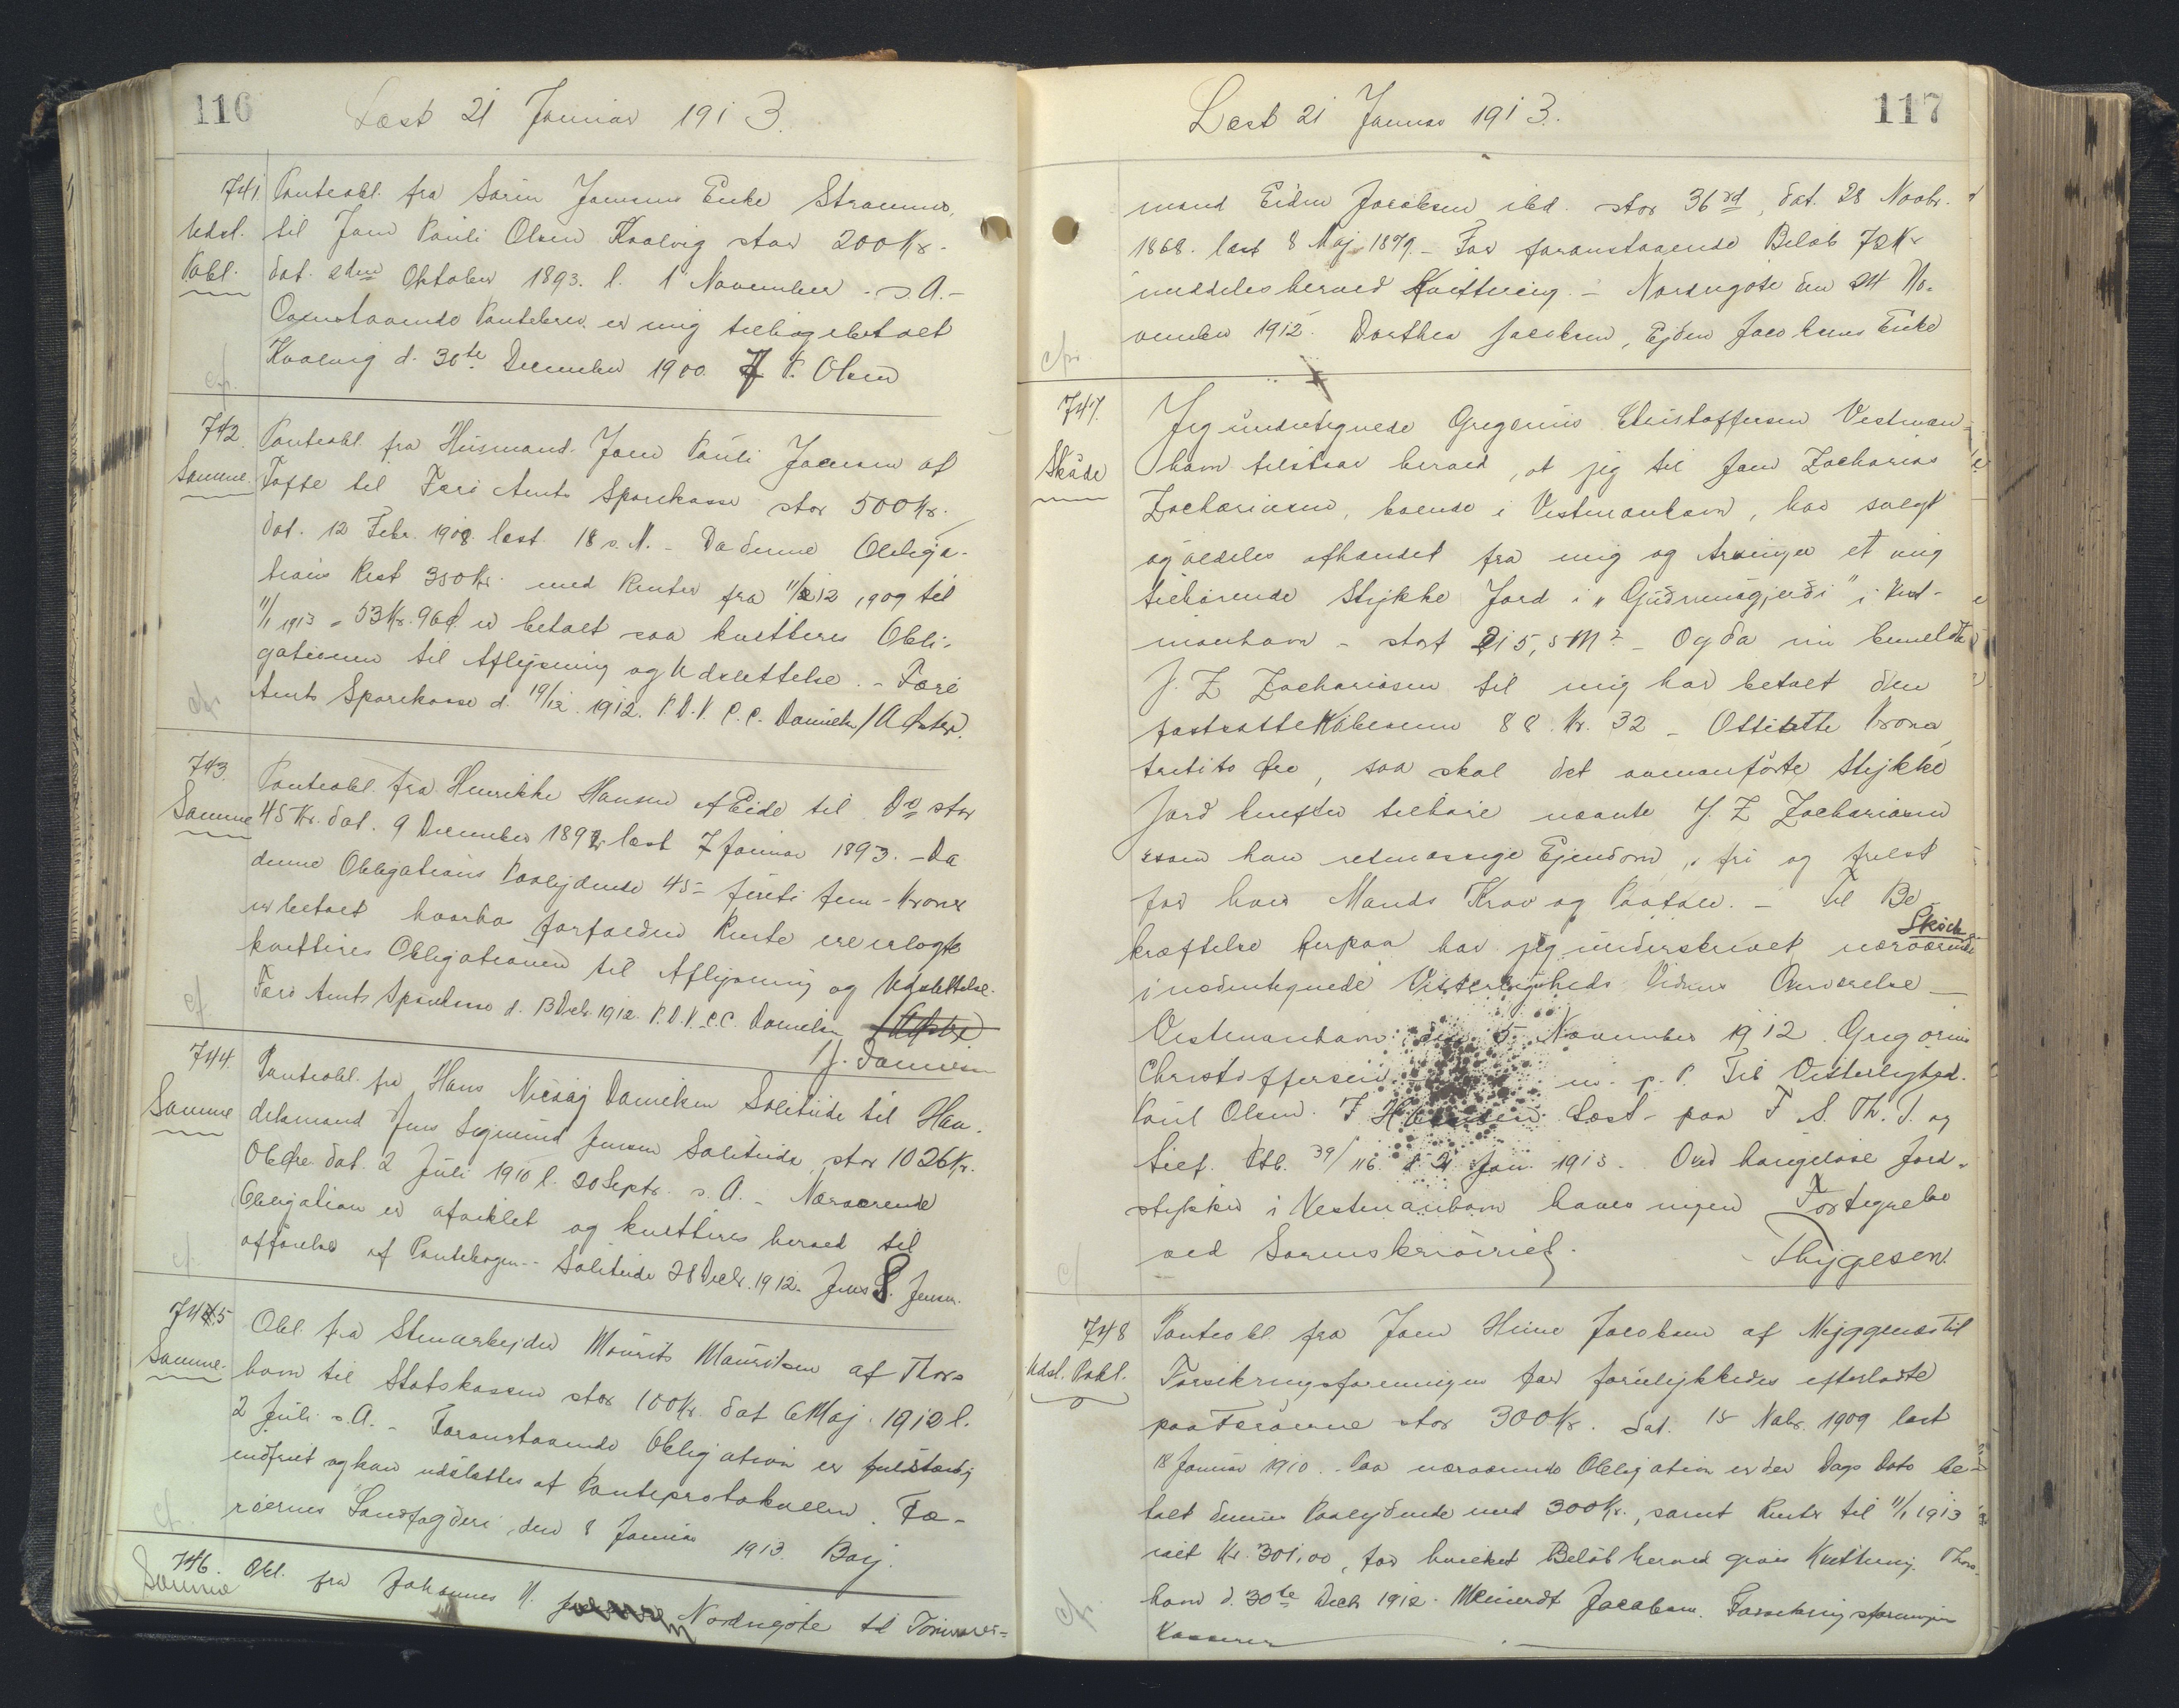 116
Læst 21 Januar 1913.
741. Panteobl. fra Sørin Joensens Enke Strømnæs,
Udsl. til Joen Pauli Olsen Kvalvig stor 200 Kr.
Pobl. dat. 2den Oktober 1893. l. 1 November s. A. -
Ovenstaaende Pantebrev er mig tilbagebetalt
Kvalvig d. 30te December 1900. J P. Olsen
cfr.
742. Panteobl. fra Husmand Joen Pauli Joensen af
Samme. Tofte til Færø Amts Sparekasse stor 500 Kr.
dat. 12 Febr. 1908 læst 18 s. M. - Da denne Obliga-
tions Rest 350 Kr. med Renter fra 11/12 1909 til
11/1 1913 = 53 Kr. 96 Ø er betalt saa kvitteres Obli-
gationen til Aflysning og Udslettelse. - Færø
Amts Sparekasse d. 19/12 1912. P. D. V. C. C. Danielsen/
cfr.
743. Panteobl. fra Henrikke Hansen af Eide til Do stor
Samme 45 Kr. dat. 9 December 1892 læst 7 Januar 1893. - Da
denne Obligations Paalydende 45 - firti fem - Kroner
er betalt hvorhos forfalden Rente er erlagt
kvitteres Obligationen til Aflysning og Udslettelse.
Færø Amts Sparekasse d. 13 Decb. 1912. P. D. V. C. C. Danielsen
/J. Danielsen
cf.
744. Panteobl. fra Hans Nicolaj Danielsen Solitude til Han-
Samme delsmand Jens Sigmund Jensen Solitude, stor 1026 Kr.
0 Øre dat. 2 Juli 1910 l. 20 Septr. s. A. - Nærværende
Obligation er afviklet og kvitteres herved til
afførelse af Pantebogen - Solitude 28 Decb. 1912. Jens S. Jensen.
cf.
745 Obl. fra Stenarbejder Mourits Mouritsen af Thors-
Samme. havn til Statskassen stor 100 Kr. dat 6 Maj 1912 l.
2 Juli s. A. - Foranstaaende Obligation er fuldstændig
indfriet og kan udslettes af Panteprotokollen. Fæ-
røernes Landfogderi, den 8 Januar 1913. Bærj.
cfr.
746. Obl. fra Johannes M. Nordregøte til
Samme
117
Læst 21 Januar 1913.
mand Eiden Jacobsen ibd. stor 36 rd, dat. 28 Novbr.
1868. læst 8 Maj 1879. - For foranstaaende Beløb 72 Kr
meddeles herved Kvittering. - Nordregøte den 24 No-
vember 1912. Dorthea Jacobsen, Ejden Jacobsens Enke
cfr.
747. Jeg undertegnede Gregorius Christoffersen Vestman-
Skøde havn tilstaar herved, at jeg til Joen Zacharias
Zachariasen, boende i Vestmanhavn, har solgt
og aldeles afhændet fra mig og Arvinger et mig
tilhørende Stykke Jord i "Gudrunsgjerdi" i Vest-
manhavn - stort 215,5 M² - Og da nu bemeldte
J. Z Zachariasen til mig har betalt den
fastsatte Købesum 88 Kr. 32 - Ottiotte Krona
tretito Øre, saa skal det ommanførte Stykke
Jord herefter tilhøre nævnte J. Z Zachariasen
som hans retmæssige Ejendom, fri og frelst
for hver Mands Krav og Paatale. - Til Be-
kræftelse herpaa har jeg underskrevet nærværende Skøde
i nedentegnede Vitterligheds Vidners Overværelse -
Vestmanhavn den 5 November 1912. Gregorius
Christoffersen m. p. P. Til Vitterlighed.
Poul Olsen. J Læst paa F. S. Th. T. og
Lief. Ptb. 39/116 d. 21 Jan. 1913. Over haugeløse Jord-
stykker i Vestmanhavn haves ingen Fortegnelse
ved Sorenskriveriet. Thygesen.
cf
748 Panteobl. fra Joen Heine Jacobsen af Myggenæs til
Udsl. Pobl. Forsikringsforeningen for forulykkedes efterladte
paa Færøerne stor 300 Kr. dat. 15 Nobr. 1909 læst
18 Januar 1910. - Paa nærværende Obligation er der Dags Dato be-
talt dennes Paalydende med 300 Kr., samt Renter til 11/1 1913
ialt Kr. 301,00, for hvilket Beløb herved gives Kvittering. Thors-
havn d. 30te Decb 1912. Meinerdt Jacobsen. Forsikringsforeningens
Kasserer
cfr.